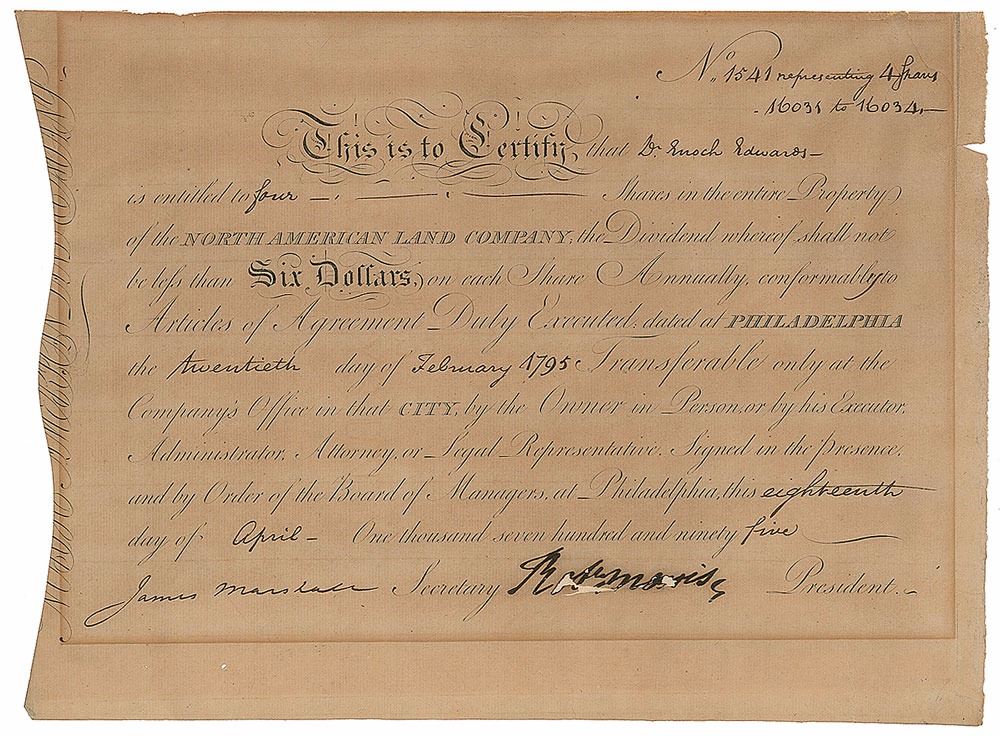 No. 1541 representing 4 Shares
16031 to 16034.—
This is to Certify, that Dr. Enoch Edwards—
is entitled to four Shares in the entire Property
of the NORTH AMERICAN LAND COMPANY, the Dividend whereof shall not
be leſs than Six Dollars, on each Share Annually, conformably to
Articles of Agreement Duly Executed; dated at PHILADELPHIA
the twentieth day of February 1795. Transferable only at the
Company's Office in that CITY, by the Owner in Person, or by his Executor,
Administrator, Attorney, or Legal Representative. Signed in the presence,
and by Order of the Board of Managers, at Philadelphia, this eighteenth
day of April— One thousand seven hundred and ninety five
James Marshall Secretary Robt Morris President.